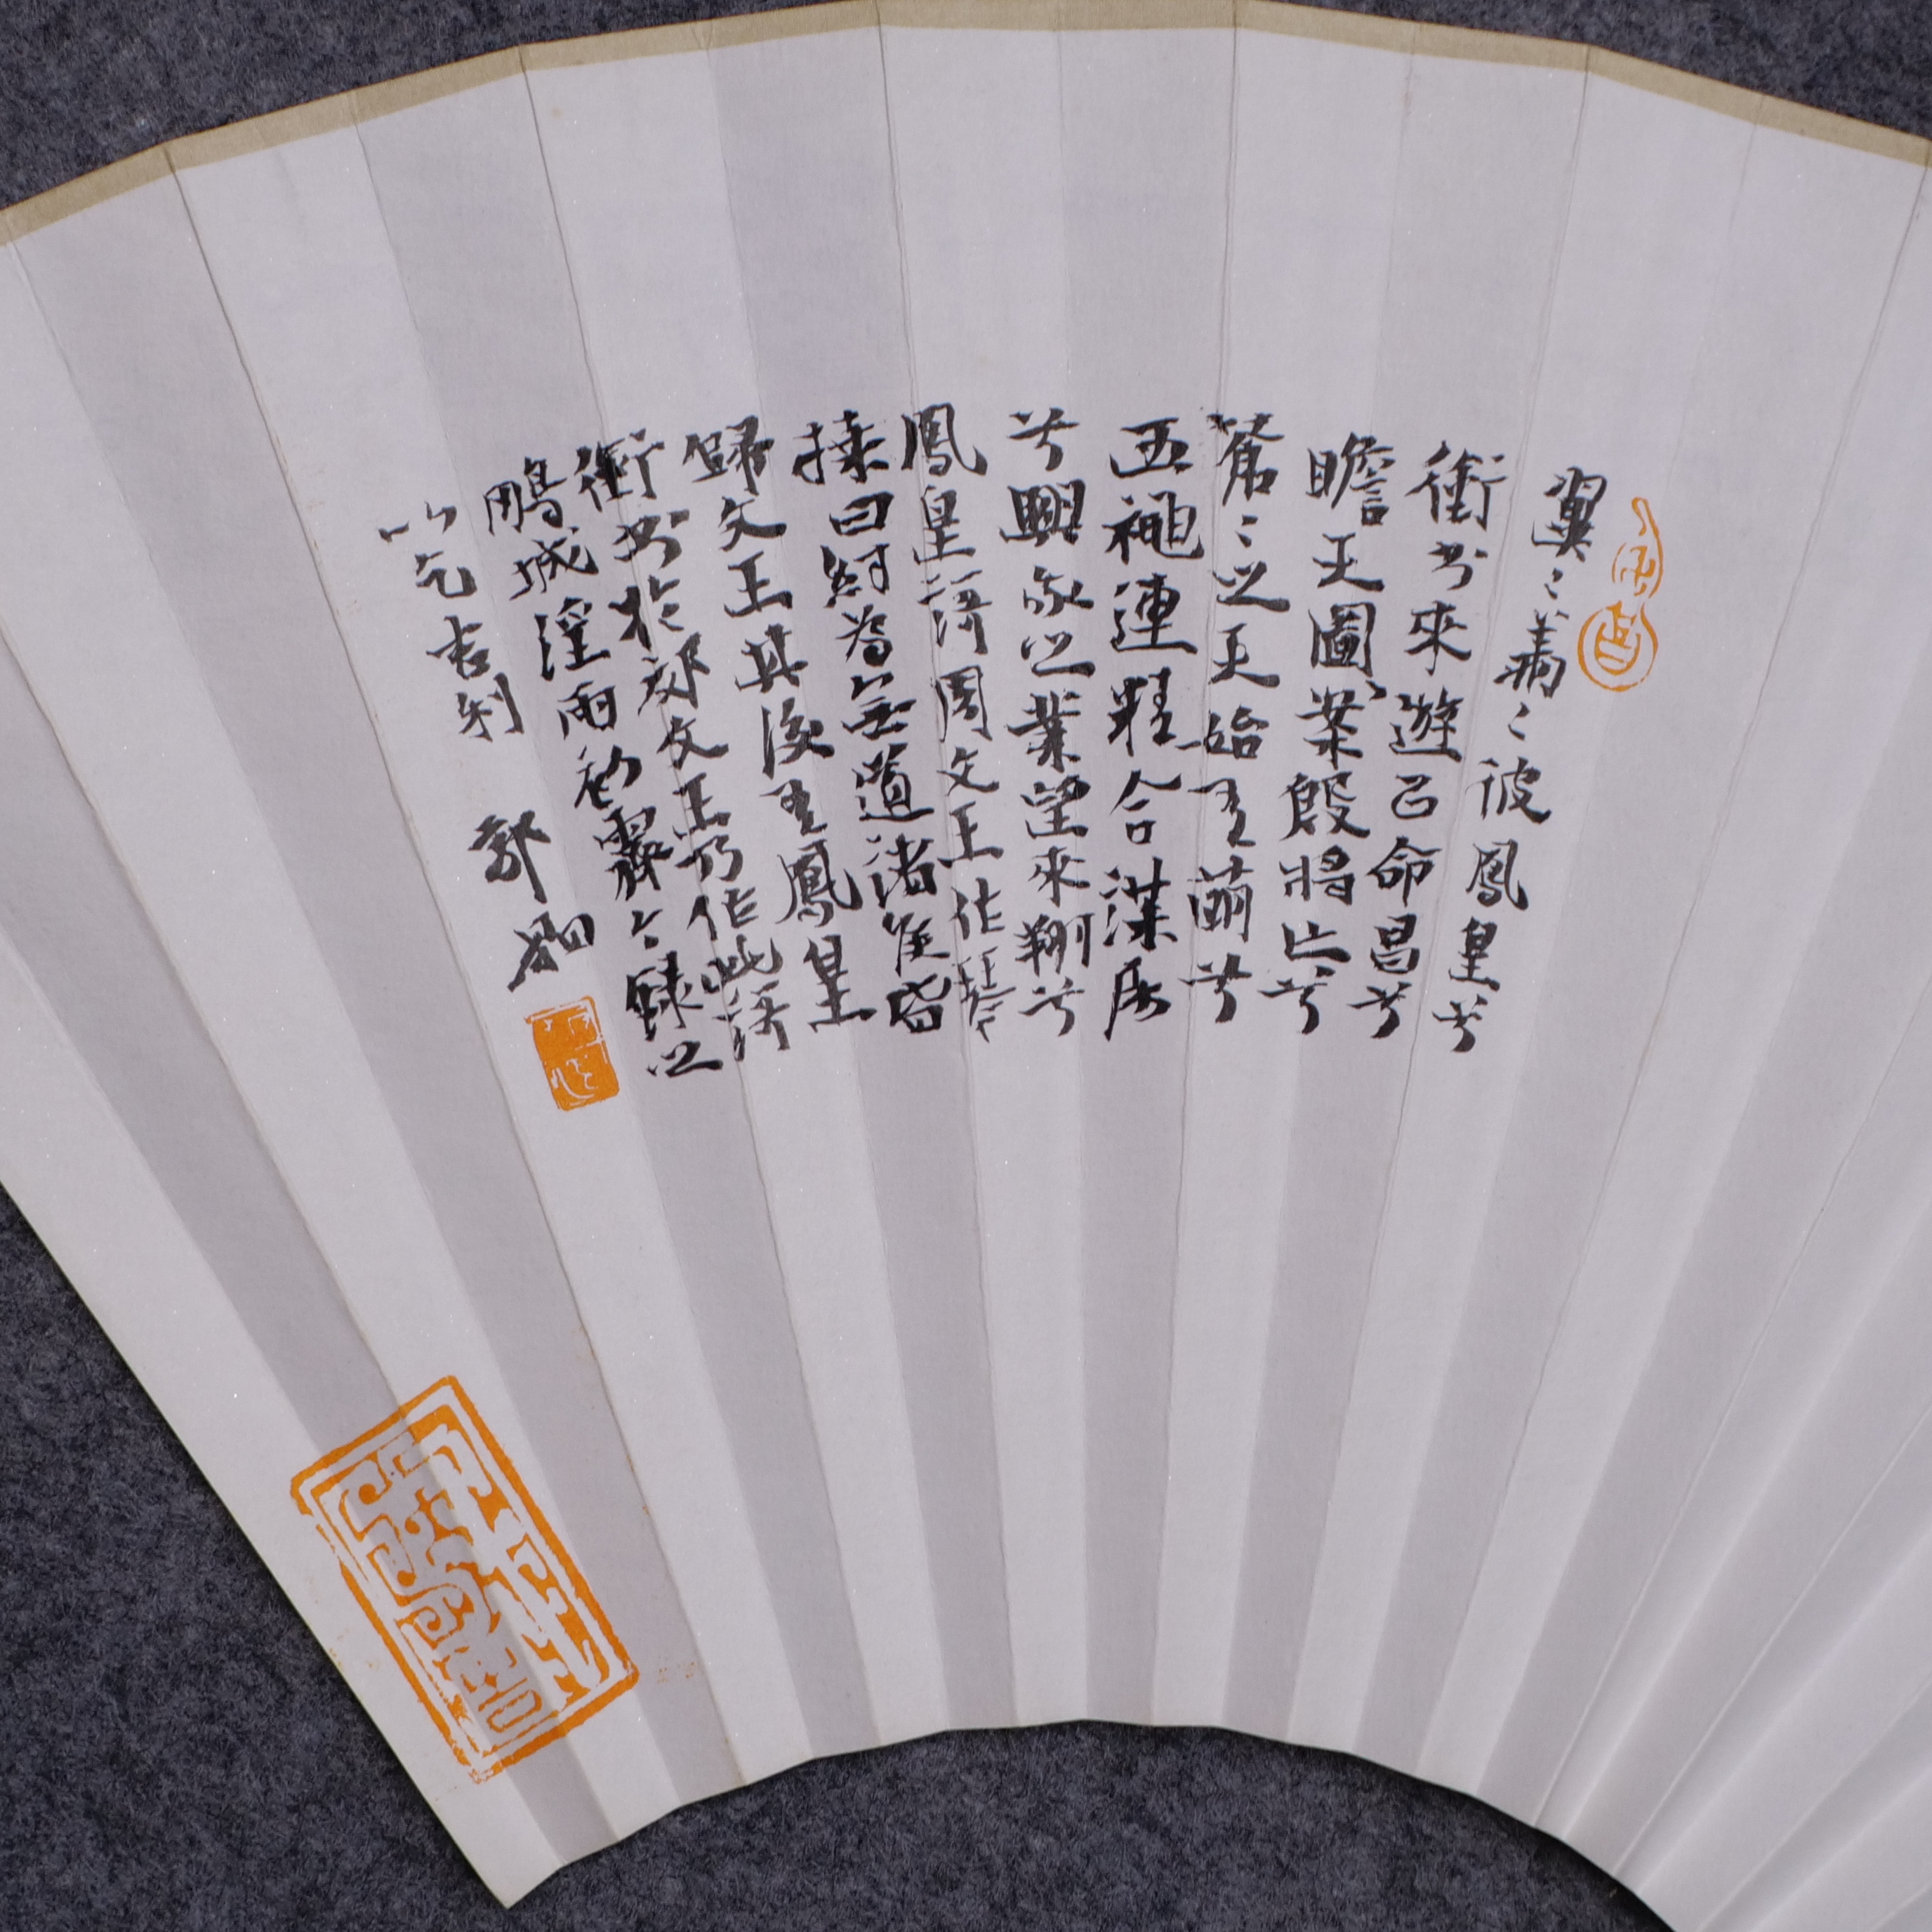 翼〻翔〻彼鳳皇兮
銜書來遊㠯命昌兮
瞻天圖案殷將亡兮
蒼〻之天始有萌兮
五神連精合謀房
兮興我之業望來翔兮
鳳皇謌周文王作琴
操曰紂為無道諸侯皆
歸文王其後有鳳皇
銜書於郊文王乃作此謌
鵬城淫雨初霽錄之
以乞吉利 郭